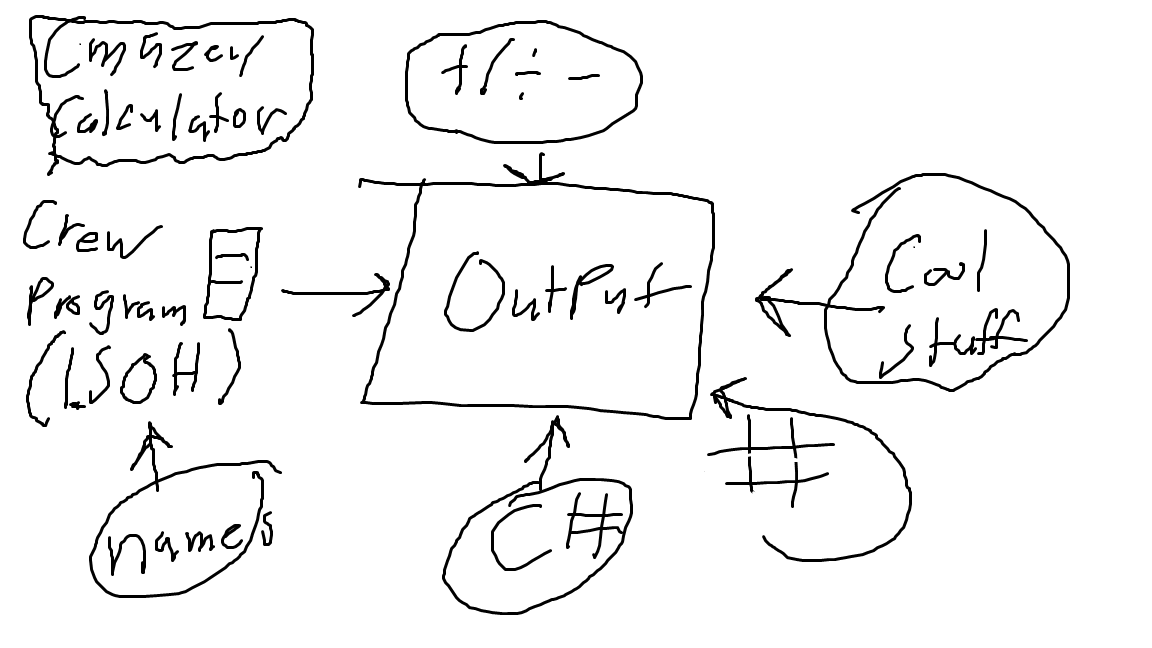 Calculator
+/÷ -
Crew
Program
(LSOH)
Output
Cool
stuff
#
names
C#